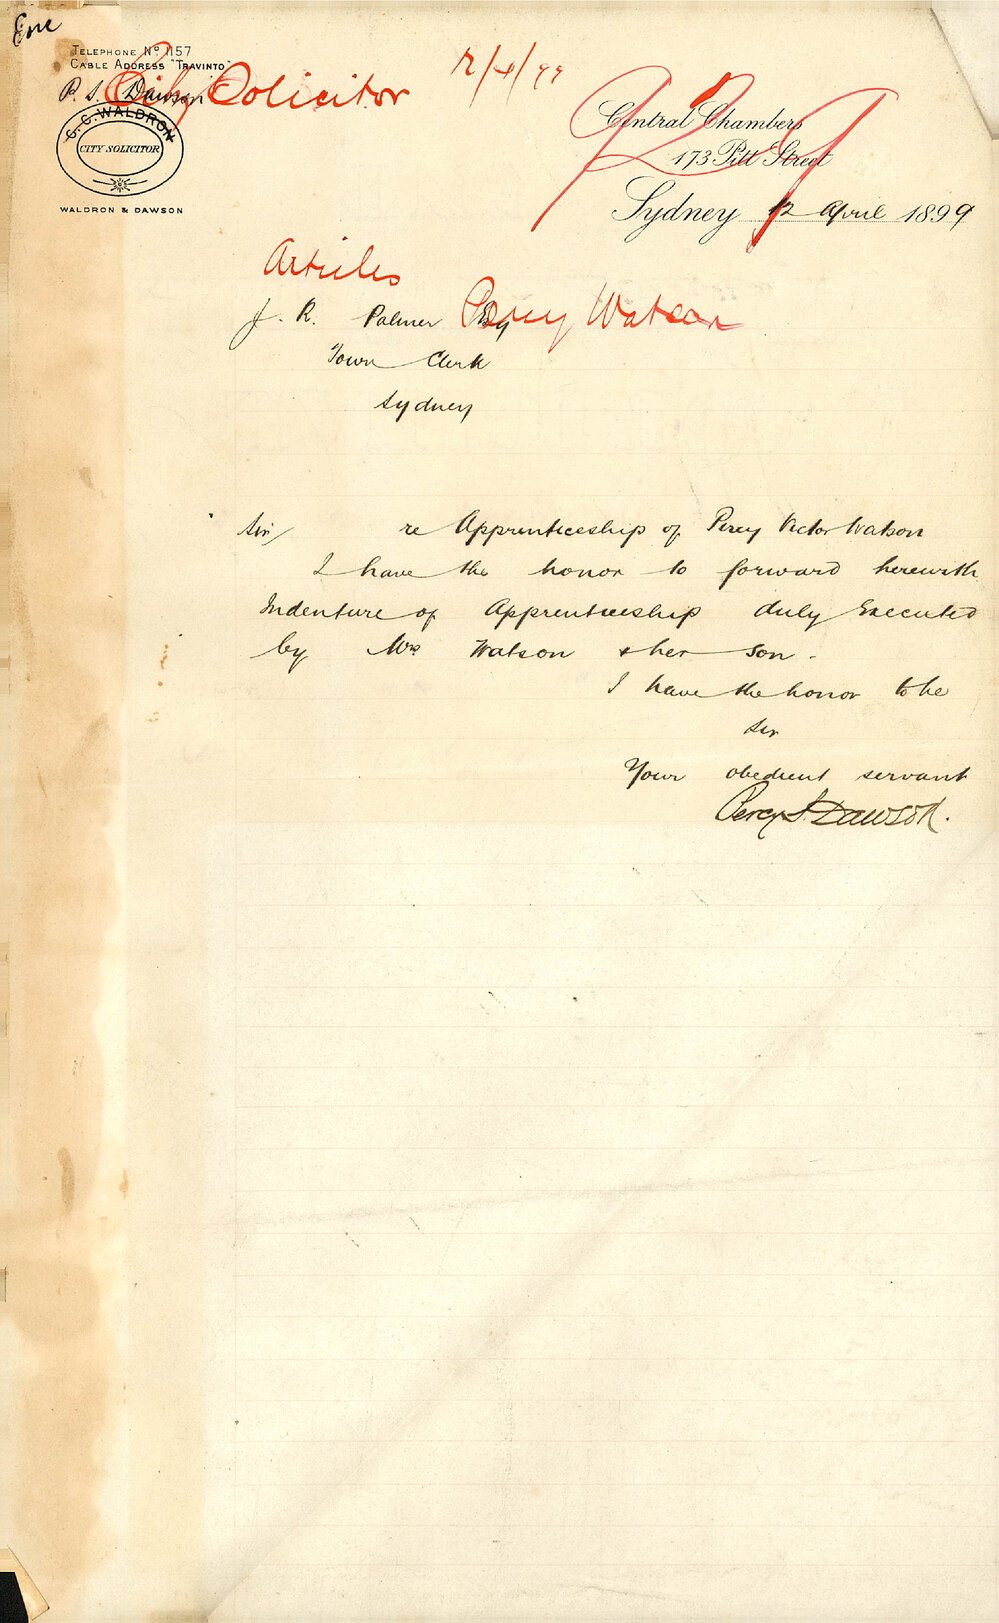 Enc
TELEPHONE Nº 1157
CABLE ADDRESS "TRAVINTO"
P. S. Dawson
City Solicitor
12/4/99
C. C. WALDRON
CITY SOLICITOR
WALDRON & DAWSON
Central Chambers
173 Pitt Street
Sydney 12 April 1899
Articles
Percy Watson
J. R. Palmer Esq
Town Clerk
Sydney
Sir re Apprenticeship of Percy Victor Watson
I have the honor to forward herewith
Indenture of Apprenticeship duly Executed
by Mrs Watson & her son.
I have the honor to be
Sir
Your obedient servant
Percy S. Dawson.